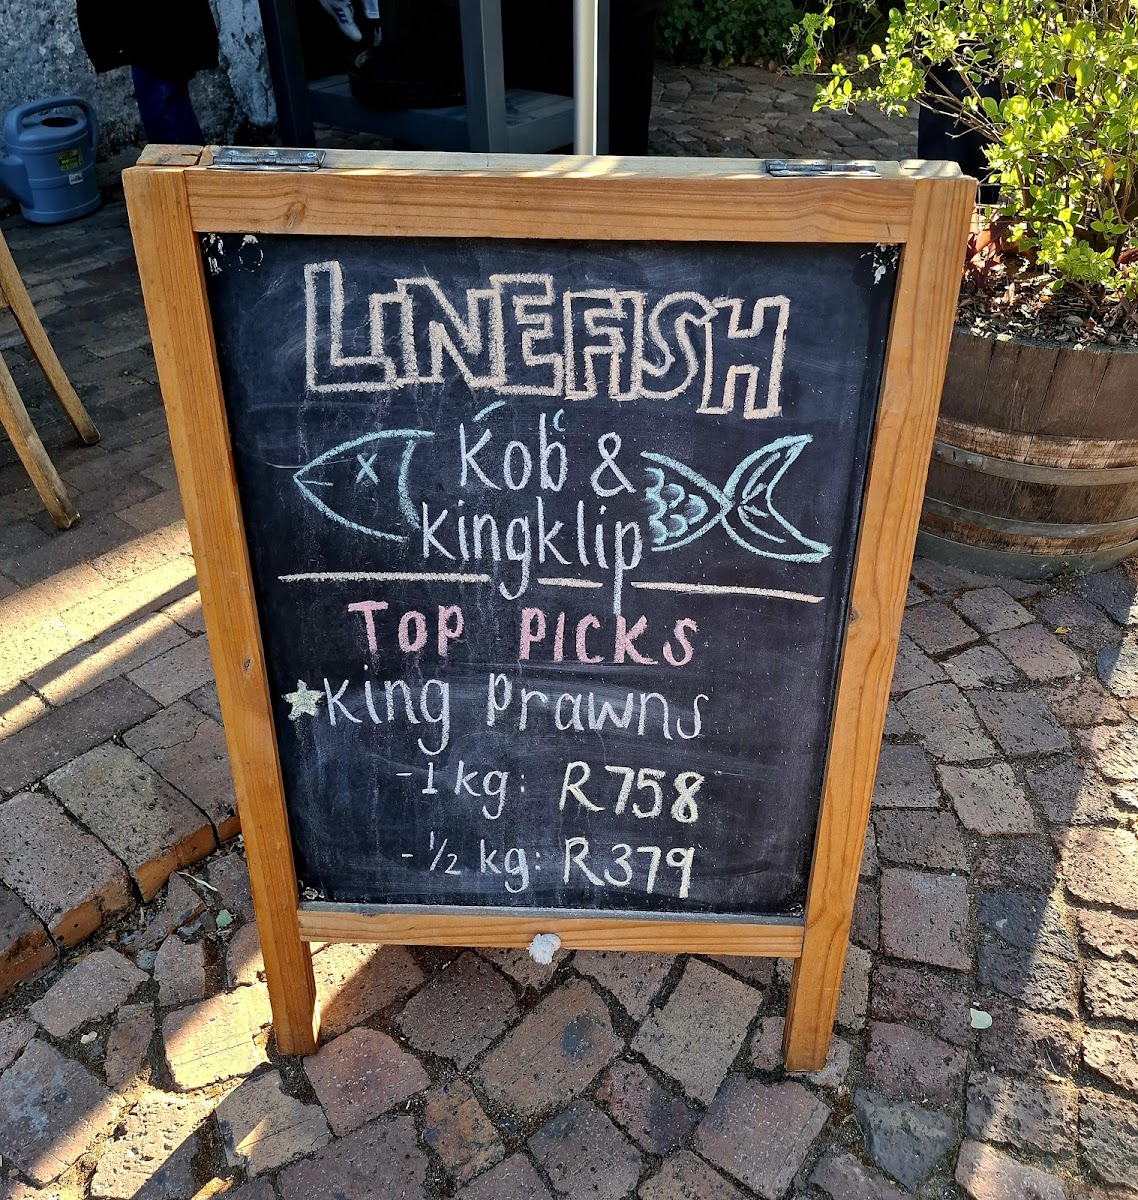 LINEFISH
Kob &
Kingklip
TOP PICKS
King Prawns
- 1 kg: R758
- 1/2 kg: R379